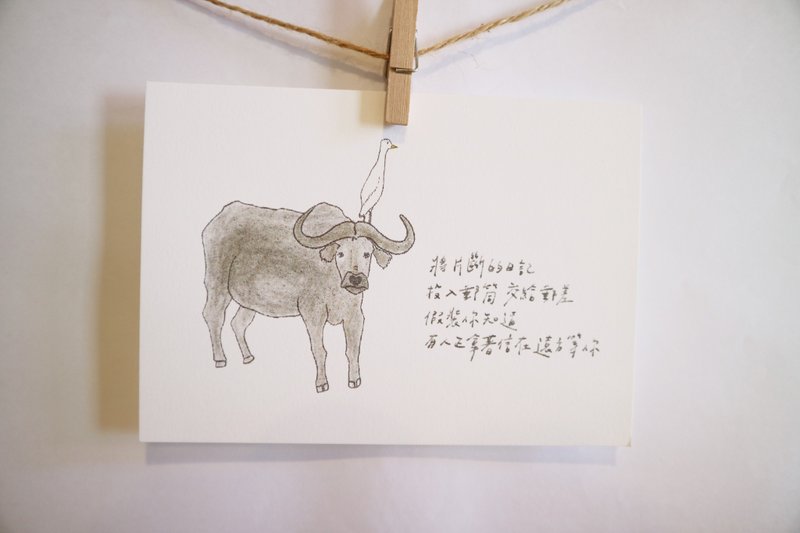 將片斷的日記
投入郵筒 交給郵差
假裝你知道
有人正拿著信在遠方等你